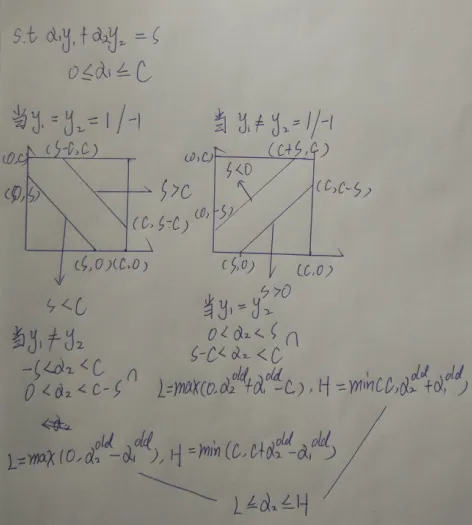 s.t α₁y₁+α₂y₂=S
0≤α₁≤C
当y₁=y₂=1/-1
当y₁≠y₂=1/-1
(0,C)
(S-C,C)
S>C
(C,S-C)
(S,0)
(C,0)
S<C
(0,C)
(C+S,C)
S<0
(C,C-S)
(0,-S)
(S,0)
(C,0)
S>0
当y₁=y₂
0<α₂<S
S-C<α₂<C
∩
当y₁≠y₂
-S<α₂<C
0<α₂<C-S
∩
L=max(0,α₂ᵒˡᵈ+α₁ᵒˡᵈ-C), H=min(C,α₂ᵒˡᵈ+α₁ᵒˡᵈ)
L=max(0,α₂ᵒˡᵈ-α₁ᵒˡᵈ), H=min(C,C+α₂ᵒˡᵈ-α₁ᵒˡᵈ)
L≤α₂≤H